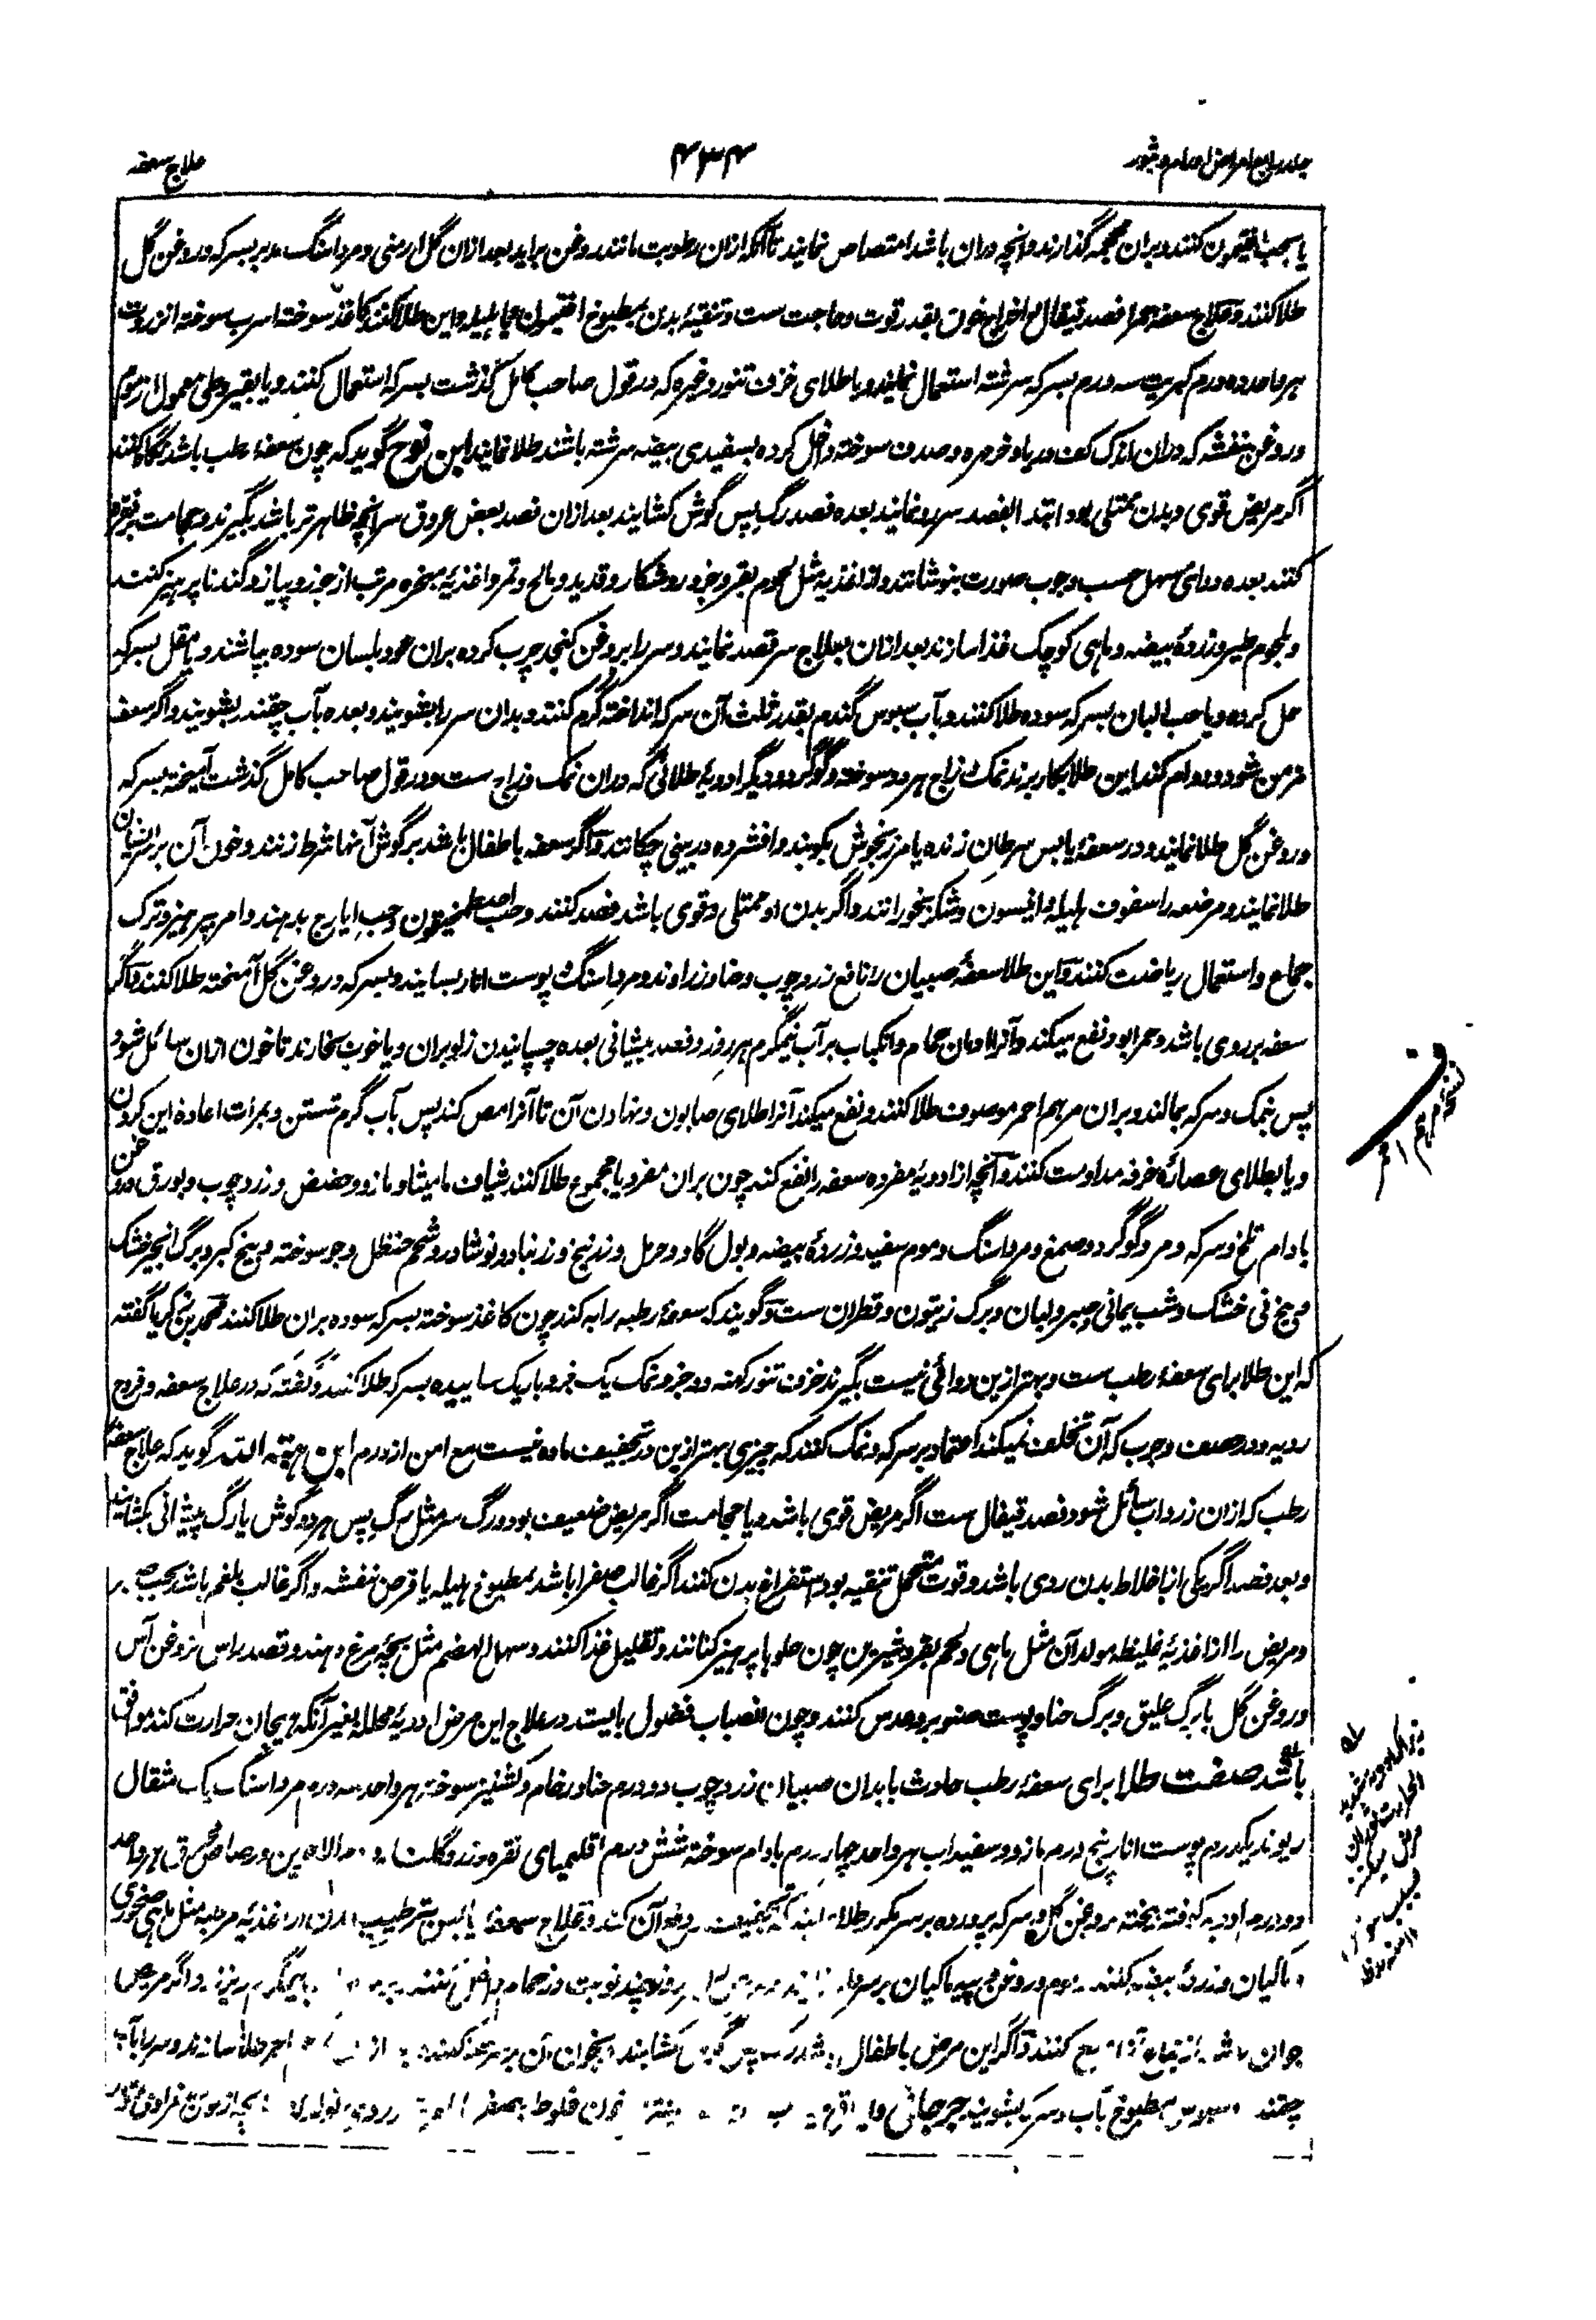 جلد رابع امراض اورام و بثور
۴۳۴
علاج سعفه
یا بحب افتیمون کنند و بران محجمه گذارند و آنچه دران باشد امتصاص نمایند تا آنکه ازان رطوبت مانند روغن براید بعد ازان گل ارمنی و مرداسنگ مدبر بسرکه و روغن گل
طلا کنند و علاج سعفه حمرا فصد قیفال و اخراج خون بقدر قوت و حاجت ست و تنقیهٔ بدن بمطبوخ افتیمون یا هلیله و این طلا کنند کاغذ سوخته اسرب سوخته انزروت
هر واحد ده درم کبریت سه درم بسرکه سرشته استعمال نمایند و یا طلای خزف تنور و غیره که در قول صاحب کامل گذشت بسرکه استعمال کنند و یا بقیروطی معمول از موم
و روغن بنفشه که دران اندک کف دریا و خرمهره و صدف سوخته داخل کرده بسفیدی بیضه سرشته باشند طلا نمایند ابن نوح گوید که چون سعفه صلب باشد نگاه کنند
اگر مریض قوی و بدن ممتلی بود ابتدا بفصد سررو نمایند بعده فصد رگ پس گوش کشایند بعد ازان فصد بعض عروق سر آنچه ظاهر تر باشد بگیرند و حجامت بر نقره
کنند بعده دوای مسهل حسب وجوب صورت بنوشانند و از اغذیه مثل لحوم بقر و جزور و شکار و قدید و مالح و تمر و اغذیهٔ مبخره مرتب از جوز و پیاز و گندنا پرهیز کنند
و بلحوم طیر و زردهٔ بیضه و ماهی کوچک غذا سازند بعد ازان بعلاج سر قصد نمایند و سر را بروغن کنجد چرب کرده بران عود بلسان سوده بپاشند و یا مقل بسرکه
حل کرده و یا حب البان بسرکه سوده طلا کنند و آب سبوس گندم بقدر ثلث آن سرکه انداخته گرم کنند و بدان سر را بشویند و بعده بآب چقندر بشویند و اگر سعفه
مزمن شود و دوام کند این طلا بکار برند نمک زاج هر دو سوخته و گوگرد و دیگر ادویهٔ طلائی که دران نمک و زاج ست و در قول صاحب کامل گذشت آمیخته بسرکه
و روغن گل طلا نمایند و در سعفهٔ یابس سرطان زنده یا مرزنجوش بکوبند و افشرده در بینی چکانند و اگر سعفه باطفال باشد بر گوش آنها شرط زنند و خون آن بر سر ایشان
طلا نمایند و مرضعه را سفوف هلیله و انیسون و شکر بخورانند و اگر بدن او ممتلی و قوی باشد فصد کنند و حب اصطمخیقون و حب ایارج بدهند و امر بپرهیز و ترک
جماع و استعمال ریاضت کنند و این طلا سعفهٔ صبیان را نافع زردچوب و حنا و زراوند و مرداسنگ پوست انار بسایند و بسرکه و روغن گل آمیخته طلا کنند و اگر
سعفه بر روی باشد و حمرا بود نفع میکند آنرا ادمان حمام و انکباب بر آب نیمگرم هر روز و فصد پیشانی بعده چسپانیدن زلو بران و یا خوب بخارند تا خون ازان سائل شود
پس بنمک و سرکه بمالند و بران مرهم احمر موصوف طلا کنند و نفع میکند آنرا طلای صابون و نهادن آن تا آنرا مص کند پس بآب گرم شستن و بمرات اعادهٔ این کردن
و یا بطلای عصارهٔ خرفه مداومت کنند و آنچه از ادویهٔ مفرده سعفه را نفع کند چون بران مفرد یا مجموع طلا کنند شیاف مامیثا و مازو و حضض و زردچوب و بورق و روغن
بادام تلخ و سرکه و مر و گوگرد و صمغ و مرداسنگ و موم سفید و زردهٔ بیضه و بول گاو و حرمل و زرنیخ و زرنباد و نوشادر و شحم حنظل و جو سوخته و بیخ کبر و برگ انجیر خشک
و بیخ نی خشک و شب یمانی و صبر و لبان و برگ زیتون و قطران ست و گویند که سعفهٔ رطبه را به کند چون کاغذ سوخته بسرکه سوده بران طلا کنند محمد بن زکریا گفته
که این طلا برای سعفه رطب ست و بهتر ازین دوائی نیست بگیرند خزف تنور کهنه دو جزو نمک یک جزو باریک ساییده بسرکه طلا کنند و گفته که در علاج سعفه و قروح
ردیه و در صعف و جرب که آن تخلف نمیکند اعتماد بر سرکه و نمک کنند که چیزی بهتر ازین در تجفیف ماده نیست مع امن از ورم ابن هبة الله گوید که علاج سعفهٔ
رطب که ازان زرداب سائل شود فصد قیفال ست اگر مریض قوی باشد و یا حجامت اگر مریض ضعیف بود و رگ سر مثل رگ پس هر دو گوش یا رگ پیشانی بکشایند
و بعد فصد اگر یکی از اخلاط بدن ردی باشد و قوت متحمل تنقیه بود استفراغ بدن کنند اگر غالب صفرا باشد بمطبوخ هلیله یا قرص بنفشه و اگر غالب بلغم باشد بحب صبر
و مریض را از اغذیهٔ غلیظه مولد آن مثل ماهی و لحم بقر و شیرین چون حلوها پرهیز کنانند و تقلیل غذا کنند و سهل الهضم مثل بچهٔ مرغ دهند و قصد راس بروغن آس
و روغن گل با برگ علیق و برگ حنا و پوست صنوبر و عدس کنند و چون انصباب فضول بایستد در علاج این مرض ادویهٔ محلله بغیر آنکه هیجان حرارت کند موافق
باشد صفت طلا برای سعفهٔ رطب حادث بابدان صبیان زردچوب دو درم حنا و رخام و کشنیز سوخته هر واحد سه درم مرداسنگ یک مثقال
ریوند یکدرم پوست انار پنج درم مازو و سفیداب هر واحد چهار درم بادام سوخته شش درم اقلیمیای نقره و زر و گلنار و دم الاخوین و رصاص محرق هر واحد
دو درم ادویه کوفته بیخته بروغن گل و سرکه پرورده بر سر مکرر طلا نمایند که تجفیف و رفع آن کند و علاج سعفهٔ یابس بترطیب بدن از اغذیه مرطبه مثل ماهی صخوری
و ماکیان و زردهٔ بیضه کنند و موم و روغن و پیه ماکیان بر سر روز چند نوبت در حمام داخل کنند نیمگرم ریزند و اگر مریض
جوان باشد کنند و اگر این مرض باطفال باشد رگ پس گوش کشایند و بخون آن احمر طلا سازند و سر را بآب
چقندر و سبوس مطبوخ بآب و سرکه بشویند جرجانی و خون مخلوط بصفرا
نسخه مرهم احمر